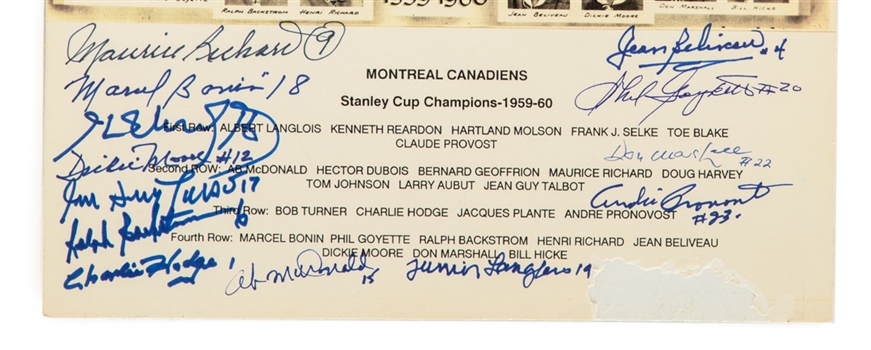 RALPH BACKSTROM HENRI RICHARD 1959-1960 JEAN BELIVEAU DICKIE MOORE DON MARSHALL BILL HICKE
Maurice Richard 9
Jean Beliveau #4
MONTREAL CANADIENS
Marcel Bonin 18
Phil Goyette #20
Stanley Cup Champions-1959-60
First Row: ALBERT LANGLOIS KENNETH REARDON HARTLAND MOLSON FRANK J. SELKE TOE BLAKE
CLAUDE PROVOST
Dickie Moore #12
Don Marshall #22
Second ROW: AB McDONALD HECTOR DUBOIS BERNARD GEOFFRION MAURICE RICHARD DOUG HARVEY
TOM JOHNSON LARRY AUBUT JEAN GUY TALBOT
Jean Guy Talbot 17
André Pronovost #23
Third Row: BOB TURNER CHARLIE HODGE JACQUES PLANTE ANDRE PRONOVOST
Ralph Backstrom 6
Fourth Row: MARCEL BONIN PHIL GOYETTE RALPH BACKSTROM HENRI RICHARD JEAN BELIVEAU
DICKIE MOORE DON MARSHALL BILL HICKE
Charlie Hodge 1
Ab McDonald 15
Junior Langlois 19